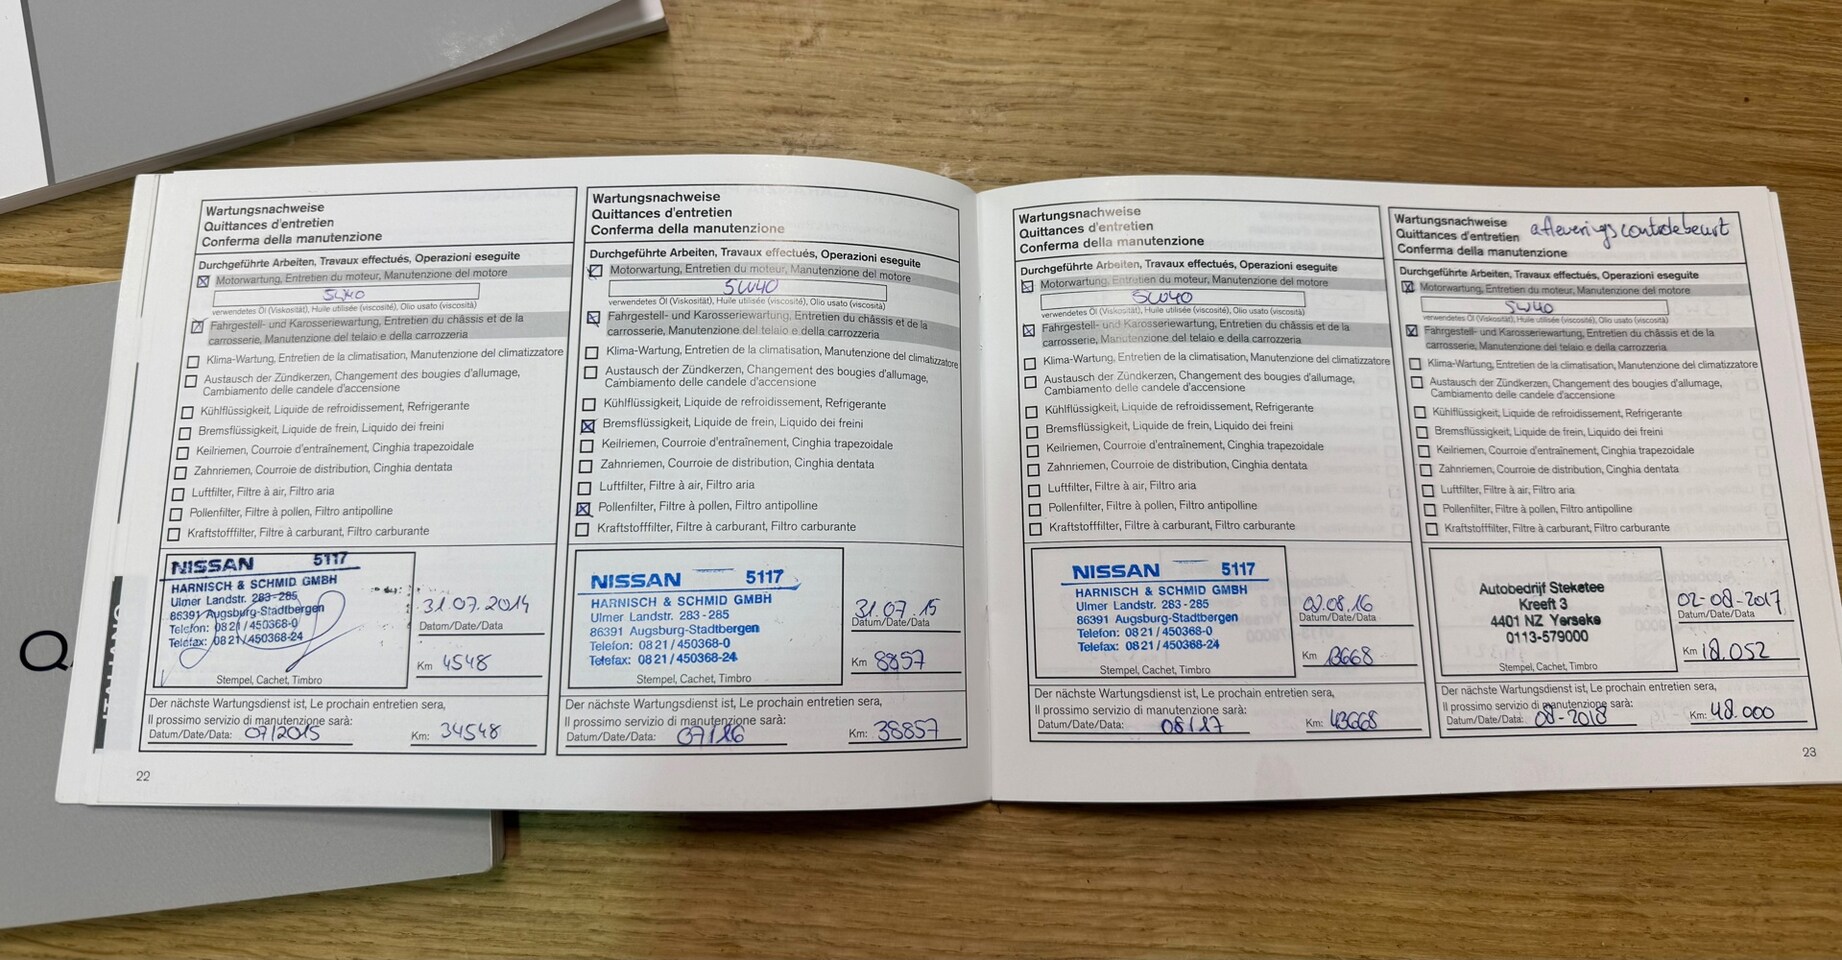 Wartungsnachweise
Quittances d'entretien
Conferma della manutenzione
Durchgeführte Arbeiten, Travaux effectués, Operazioni eseguite
Motorwartung, Entretien du moteur, Manutenzione del motore
5W40
verwendetes Öl (Viskosität), Huile utilisée (viscosité), Olio usato (viscosità)
Fahrgestell- und Karosseriewartung, Entretien du châssis et de la
carrosserie, Manutenzione del telaio e della carrozzeria
Klima-Wartung, Entretien de la climatisation, Manutenzione del climatizzatore
Austausch der Zündkerzen, Changement des bougies d'allumage,
Cambiamento delle candele d'accensione
Kühlflüssigkeit, Liquide de refroidissement, Refrigerante
Bremsflüssigkeit, Liquide de frein, Liquido dei freini
Keilriemen, Courroie d'entraînement, Cinghia trapezoidale
Zahnriemen, Courroie de distribution, Cinghia dentata
Luftfilter, Filtre à air, Filtro aria
Pollenfilter, Filtre à pollen, Filtro antipolline
Kraftstofffilter, Filtre à carburant, Filtro carburante
NISSAN 5117
HARNISCH & SCHMID GMBH
Ulmer Landstr. 283-285
86391 Augsburg-Stadtbergen
Telefon: 0821/450368-0
Telefax: 0821/450368-24
Stempel, Cachet, Timbro
31.07.2014
Datom/Date/Data
Km 4548
Der nächste Wartungsdienst ist, Le prochain entretien sera,
Il prossimo servizio di manutenzione sarà:
Datum/Date/Data: 07/2015 Km: 34548
22
Wartungsnachweise
Quittances d'entretien
Conferma della manutenzione
Durchgeführte Arbeiten, Travaux effectués, Operazioni eseguite
Motorwartung, Entretien du moteur, Manutenzione del motore
5W40
verwendetes Öl (Viskosität), Huile utilisée (viscosité), Olio usato (viscosità)
Fahrgestell- und Karosseriewartung, Entretien du châssis et de la
carrosserie, Manutenzione del telaio e della carrozzeria
Klima-Wartung, Entretien de la climatisation, Manutenzione del climatizzatore
Austausch der Zündkerzen, Changement des bougies d'allumage,
Cambiamento delle candele d'accensione
Kühlflüssigkeit, Liquide de refroidissement, Refrigerante
Bremsflüssigkeit, Liquide de frein, Liquido dei freini
Keilriemen, Courroie d'entraînement, Cinghia trapezoidale
Zahnriemen, Courroie de distribution, Cinghia dentata
Luftfilter, Filtre à air, Filtro aria
Pollenfilter, Filtre à pollen, Filtro antipolline
Kraftstofffilter, Filtre à carburant, Filtro carburante
NISSAN 5117
HARNISCH & SCHMID GMBH
Ulmer Landstr. 283-285
86391 Augsburg-Stadtbergen
Telefon: 0821/450368-0
Telefax: 0821/450368-24
Stempel, Cachet, Timbro
31.07.15
Datum/Date/Data
Km 8857
Der nächste Wartungsdienst ist, Le prochain entretien sera,
Il prossimo servizio di manutenzione sarà:
Datum/Date/Data: 07/16 Km: 38857
Wartungsnachweise
Quittances d'entretien
Conferma della manutenzione
Durchgeführte Arbeiten, Travaux effectués, Operazioni eseguite
Motorwartung, Entretien du moteur, Manutenzione del motore
5W40
verwendetes Öl (Viskosität), Huile utilisée (viscosité), Olio usato (viscosità)
Fahrgestell- und Karosseriewartung, Entretien du châssis et de la
carrosserie, Manutenzione del telaio e della carrozzeria
Klima-Wartung, Entretien de la climatisation, Manutenzione del climatizzatore
Austausch der Zündkerzen, Changement des bougies d'allumage,
Cambiamento delle candele d'accensione
Kühlflüssigkeit, Liquide de refroidissement, Refrigerante
Bremsflüssigkeit, Liquide de frein, Liquido dei freini
Keilriemen, Courroie d'entraînement, Cinghia trapezoidale
Zahnriemen, Courroie de distribution, Cinghia dentata
Luftfilter, Filtre à air, Filtro aria
Pollenfilter, Filtre à pollen, Filtro antipolline
Kraftstofffilter, Filtre à carburant, Filtro carburante
NISSAN 5117
HARNISCH & SCHMID GMBH
Ulmer Landstr. 283-285
86391 Augsburg-Stadtbergen
Telefon: 0821/450368-0
Telefax: 0821/450368-24
Stempel, Cachet, Timbro
02.08.16
Datum/Date/Data
Km 13668
Der nächste Wartungsdienst ist, Le prochain entretien sera,
Il prossimo servizio di manutenzione sarà:
Datum/Date/Data: 08/17 Km: 43668
Wartungsnachweise
Quittances d'entretien afleveringscontrolebeurt
Conferma della manutenzione
Durchgeführte Arbeiten, Travaux effectués, Operazioni eseguite
Motorwartung, Entretien du moteur, Manutenzione del motore
5W40
verwendetes Öl (Viskosität), Huile utilisée (viscosité), Olio usato (viscosità)
Fahrgestell- und Karosseriewartung, Entretien du châssis et de la
carrosserie, Manutenzione del telaio e della carrozzeria
Klima-Wartung, Entretien de la climatisation, Manutenzione del climatizzatore
Austausch der Zündkerzen, Changement des bougies d'allumage,
Cambiamento delle candele d'accensione
Kühlflüssigkeit, Liquide de refroidissement, Refrigerante
Bremsflüssigkeit, Liquide de frein, Liquido dei freini
Keilriemen, Courroie d'entraînement, Cinghia trapezoidale
Zahnriemen, Courroie de distribution, Cinghia dentata
Luftfilter, Filtre à air, Filtro aria
Pollenfilter, Filtre à pollen, Filtro antipolline
Kraftstofffilter, Filtre à carburant, Filtro carburante
Autobedrijf Steketee
Kreeft 3
4401 NZ Yerseke
0113-579000
Stempel, Cachet, Timbro
02-08-2017
Datum/Date/Data
Km 18.052
Der nächste Wartungsdienst ist, Le prochain entretien sera,
Il prossimo servizio di manutenzione sarà:
Datum/Date/Data: 08-2018 Km: 48.000
23